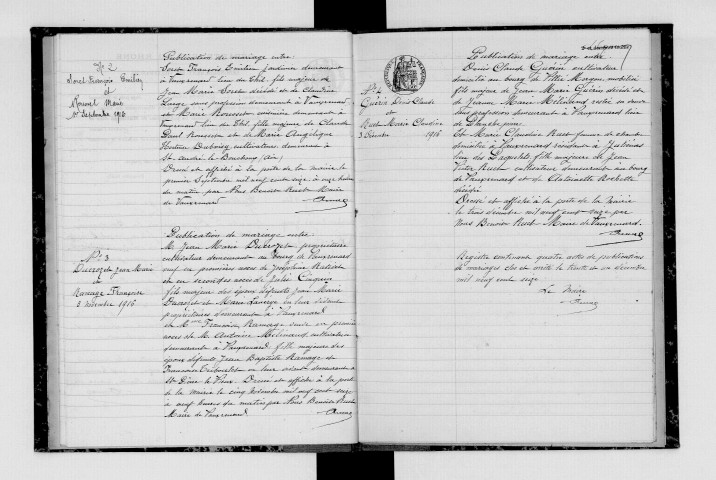 N° 2
Soret François Emilien
et
Rousset Marie
1er Septembre 1916
Publication de mariage entre
Soret François Emilien jardinier demeurant
à Vauxrenard lieu du Thil, fils majeur de
Jean Marie Soret décédé et de Claudine
Large sans profession demeurant à Vauxrenard
et Marie Rousset demeurant à
Vauxrenard lieu du Thil, fille majeure de Claude
Paul Rousset et de Marie Angélique
cultivateurs demeurant à
St André le Bouchoux (Ain)
Dressé et affiché à la porte de la mairie le
premier Septembre mil neuf cent seize, à onze heures
du matin par Nous Benoit Ruet Maire
de Vauxrenard
N° 3
Ducrozet Jean Marie
et
Ramage Françoise
5 novembre 1916
Publication de mariage entre
M. Jean Marie Ducrozet propriétaire
cultivateur demeurant au bourg de Vauxrenard
veuf en premières noces de Joséphine
et en secondes noces de Julie
fils majeur des époux défunts Jean Marie
Ducrozet et Marie en leur vivant
propriétaires demeurant à Vauxrenard
et Mme Françoise Ramage veuve en premières
noces de M. Antoine Melinand, cultivatrice
demeurant à Vauxrenard, fille majeure des
époux défunts Jean Baptiste Ramage et
Françoise en leur vivant demeurant à
St Didier. Dressé et affiché à la porte
de la mairie le cinq novembre mil neuf cent seize
à neuf heures du matin par Nous Benoit Ruet
Maire de Vauxrenard
N° 4
Guérin Denis Claude
et
Ruet Marie Claudine
3 Décembre 1916
Publication de mariage entre
Denis Claude Guérin cultivateur
domicilié au bourg de Villié Morgon, mobilisé
fils majeur de Jean Marie Guérin décédé et
de Jeanne Marie Melinand restée sa veuve
sans profession demeurant à Vauxrenard lieu
de
Et Marie Claudine Ruet femme de chambre
domiciliée à Vauxrenard résidant à Juliénas
lieu des Paquelets fille majeure de Jean
Victor Ruet cultivateur demeurant au bourg
de Vauxrenard et de Antoinette Rochette
décédée
Dressé et affiché à la porte de la mairie
le trois décembre mil neuf cent seize par
Nous Benoit Ruet Maire de Vauxrenard.
Registre contenant quatre actes de publications
de mariages clos et arrêté le trente et un décembre
mil neuf cent seize
Le Maire